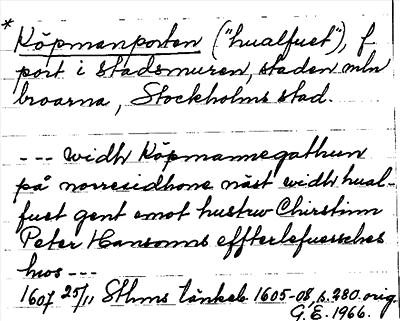 * Köpmanporten ("hualfuet"), f.
port i stadsmuren, staden mln
broarna, Stockholms stad.
--- widh Köpmannegathun
på norresidhone näst widh hual-
fuet gent emot hustrw Chirstinn
Peter Hansonns effterlefuersches
hws ---
1607 25/11 Sthms tänkeb. 1605-08, s. 280. orig.
G.E. 1966.